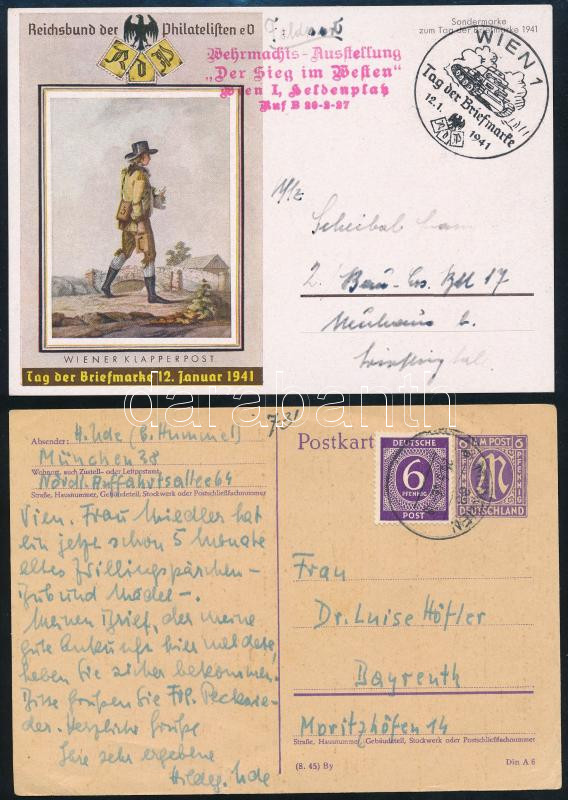 Reichsbund der Philatelisten eV
R D P
Sondermarke
zum Tag der Briefmarke 1941
Wehrmachts-Ausstellung
„Der Sieg im Westen“
Wien I, Heldenplatz
Ruf B 20-2-27
WIEN 1
Tag der Briefmarke
12.1. 1941
R D P
2. Bau-
17
WIENER KLAPPERPOST
Tag der Briefmarke 12. Januar 1941
darabanth
Absender: H. Ude (b. Hummel)
München 38
Wohnort, auch Zustell- oder Leitpostamt
Nördl. Auffahrtsallee 64
Straße, Hausnummer, Gebäudeteil, Stockwerk oder Postschließfachnummer
Postkarte
DEUTSCHE
6
PFENNIG
POST
6 AM POST 6
PFENNIG PFENNIG
M
DEUTSCHLAND
Frau Miedler hat
ein jetzt schon 5 Monate
altes Zwillingspärchen –
Bub und Mädel –.
Meinen Brief, der meine
gute Ankunft hier meldete,
haben Sie sicher bekommen.
Bitte grüßen Sie
Herzliche Grüße
Ihre sehr ergebene
Hildeg. Ude
Frau
Dr. Luise Höfler
Bayreuth
Moritzhöfen 14
Straße, Hausnummer, Gebäudeteil, Stockwerk oder Postschließfachnummer
(8. 45) By
Din A 6